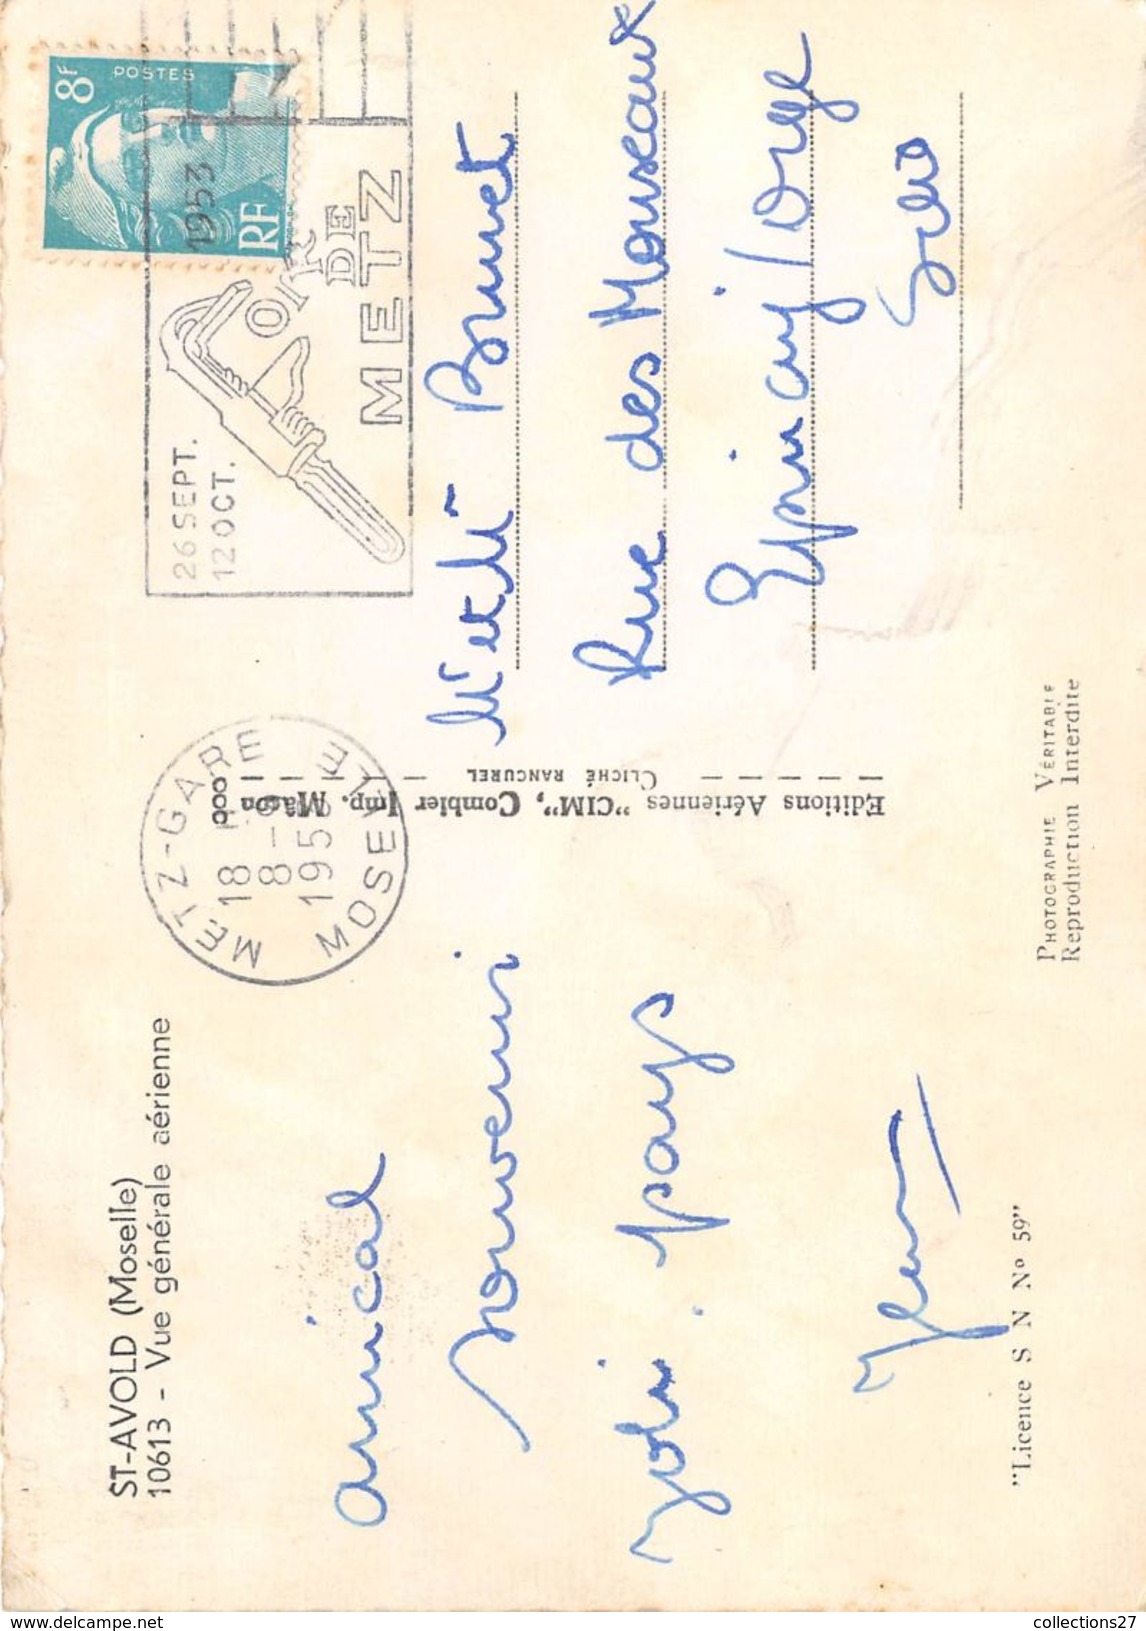 ST-AVOLD (Moselle)
10613 - Vue générale aérienne
amical
souvenir
Joli pays
"Licence S N Nº 59"
METZ-GARE
18 H
8-9
1953
MOSELLE
Editions Aériennes "CIM", Combier Imp. Mâcon
CLICHÉ RANCUREL
26 SEPT.
12 OCT.
1953
FOIRE
DE
METZ
8F
POSTES
RF
Brunet
Rue des Mousseaux
Epinay / orge
S et O
PHOTOGRAPHIE VÉRITABLE
Reproduction Interdite
collections27